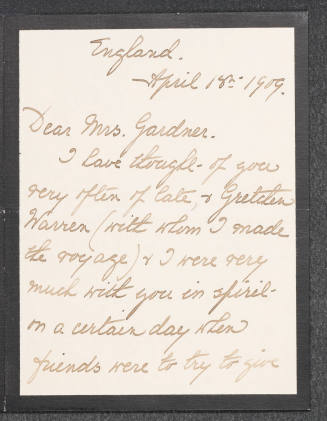 England.
April 18th 1909.
Dear Mrs. Gardner.
I have thought of you
very often of late, & Gretchen
Warren (with whom I made
the voyage) & I were very
much with you in spirit
on a certain day when
friends were to try to give